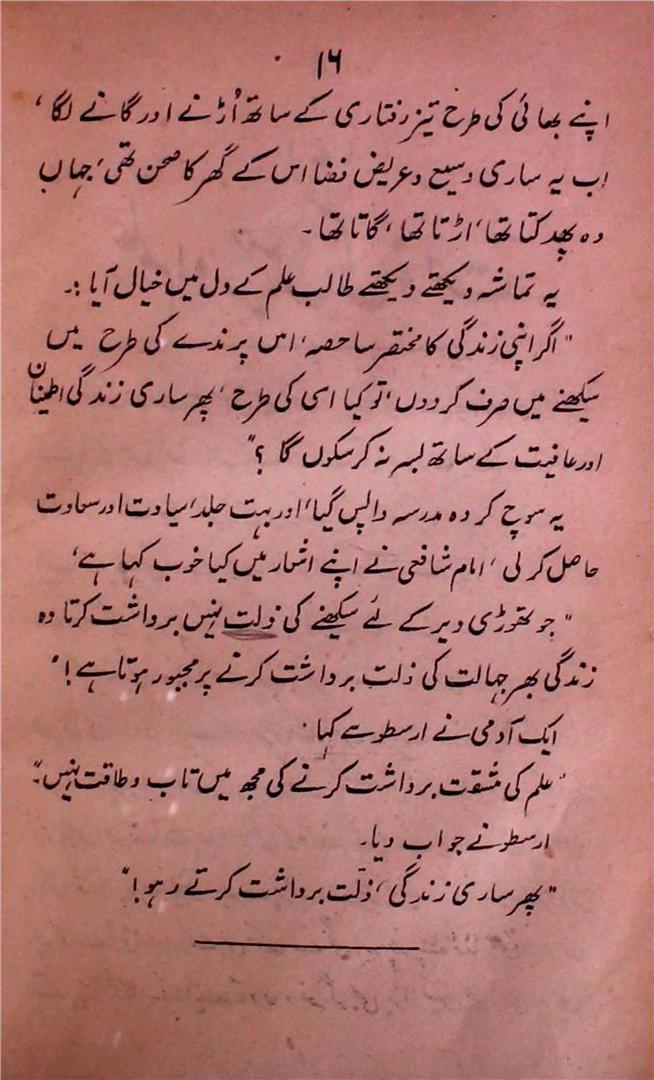 ۱۶
اپنے بھائی کی طرح تیز رفتاری کے ساتھ اُڑنے اور گانے لگا،
اب یہ ساری وسیع و عریض فضا اس کے گھر کا صحن تھی، جہاں
وہ پھدکتا تھا، اڑتا تھا، گاتا تھا۔
یہ تماشہ دیکھتے دیکھتے طالب علم کے دل میں خیال آیا :۔
"اگر اپنی زندگی کا مختصر سا حصہ، اس پرندے کی طرح میں
سیکھنے میں صرف کر دوں، تو کیا اسی کی طرح، پھر ساری زندگی اطینان
اور عافیت کے ساتھ بسر نہ کر سکوں گا ؟"
یہ سوچ کر وہ مدرسہ واپس گیا، اور بہت جلد، سیادت اور سعادت
حاصل کر لی، امام شافعی نے اپنے اشعار میں کیا خوب کہا ہے،
"جو تھوڑی دیر کے لئے سیکھنے کی ذلت نہیں برداشت کرتا وہ
زندگی بھر جہالت کی ذلت برداشت کرنے پر مجبور ہوتا ہے!"
ایک آدمی نے ارسطو سے کہا۔
"علم کی مشقت برداشت کرنے کی مجھ میں تاب و طاقت نہیں۔"
ارسطو نے جواب دیا۔
"پھر ساری زندگی، ذلّت برداشت کرتے رہو!"